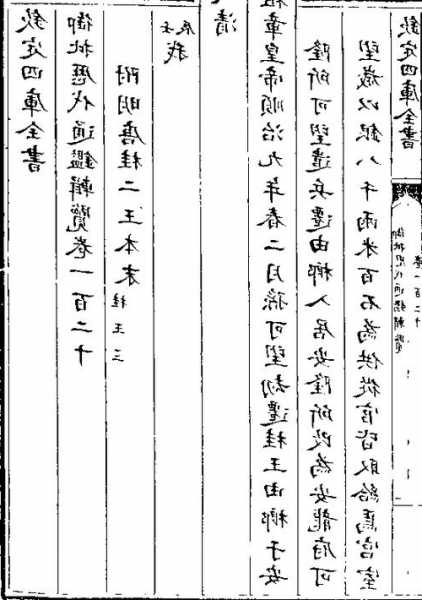 欽定四庫全書
御批歷代通鑑輯覽卷一百二十
附明唐桂二王本末 桂王三
壬辰 我
清
祖章皇帝順治九年春二月孫可望劫遷桂王由榔于安
隆所可望遣兵遷由榔入居安隆所改為安龍府可
望歲以銀八千兩米百石為供從官皆取給焉宮室
欽定四庫全書
卷一百二十
御批歷代通鑑輯覽